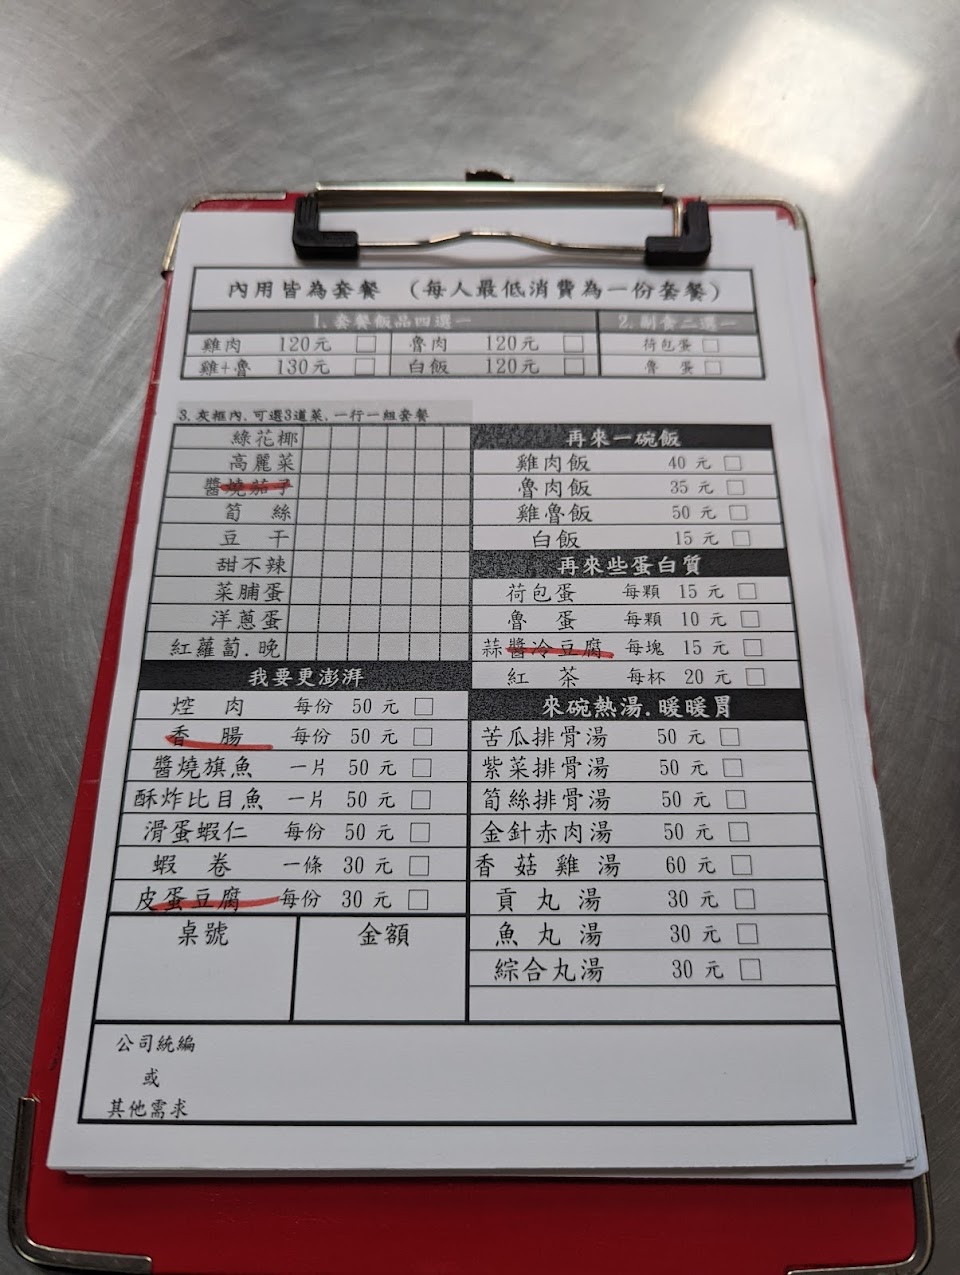 內用皆為套餐 （每人最低消費為一份套餐）
1. 套餐飯品四選一
2. 副食二選一
雞肉 120元 □ 魯肉 120元 □ 荷包蛋 □
雞+魯 130元 □ 白飯 120元 □ 魯 蛋 □
3. 灰框內. 可選3道菜. 一行一組套餐
綠花椰
高麗菜
醬燒茄子
筍 絲
豆 干
甜不辣
菜脯蛋
洋蔥蛋
紅蘿蔔.晚
我要更澎湃
焢 肉 每份 50 元 □
香 腸 每份 50 元 □
醬燒旗魚 一片 50 元 □
酥炸比目魚 一片 50 元 □
滑蛋蝦仁 每份 50 元 □
蝦 卷 一條 30 元 □
皮蛋豆腐 每份 30 元 □
桌號 金額
再來一碗飯
雞肉飯 40 元 □
魯肉飯 35 元 □
雞魯飯 50 元 □
白飯 15 元 □
再來些蛋白質
荷包蛋 每顆 15 元 □
魯 蛋 每顆 10 元 □
蒜醬冷豆腐 每塊 15 元 □
紅 茶 每杯 20 元 □
來碗熱湯.暖暖胃
苦瓜排骨湯 50 元 □
紫菜排骨湯 50 元 □
筍絲排骨湯 50 元 □
金針赤肉湯 50 元 □
香 菇 雞 湯 60 元 □
貢 丸 湯 30 元 □
魚 丸 湯 30 元 □
綜合丸湯 30 元 □
公司統編
或
其他需求